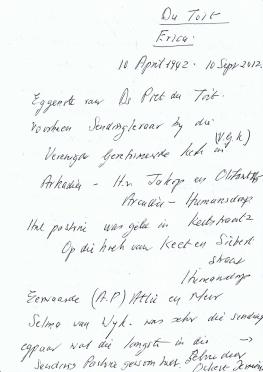 Du Toit
Erica
10 April 1942 - 10 Sept 2012.
Eggenote van Ds Piet du Toit.
Voorheen Sendingleraar by die
(V.G.K)
Verenigde Gereformeerde Kerk in
Arkadia - H.v. Jakop en Olifant
Arcadia - Humansdorp
Hul pastorie was geleë in Keetstraat 2
Op die hoek van Keet en Siebert
straat
Humansdorp
Eerwaarde (A.P) Attie en Mev
Selma van Wyk. was seker die sending
egpaar wat die langste in die →
Sending Pastorie gewoon het.